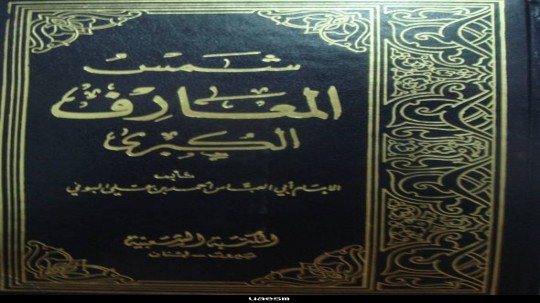 شمس
المعارف
الكبرى
تأليف
الإمام أبي العباس أحمد بن علي البوني
المكتبة الشعبية
بيروت - لبنان
uaesm